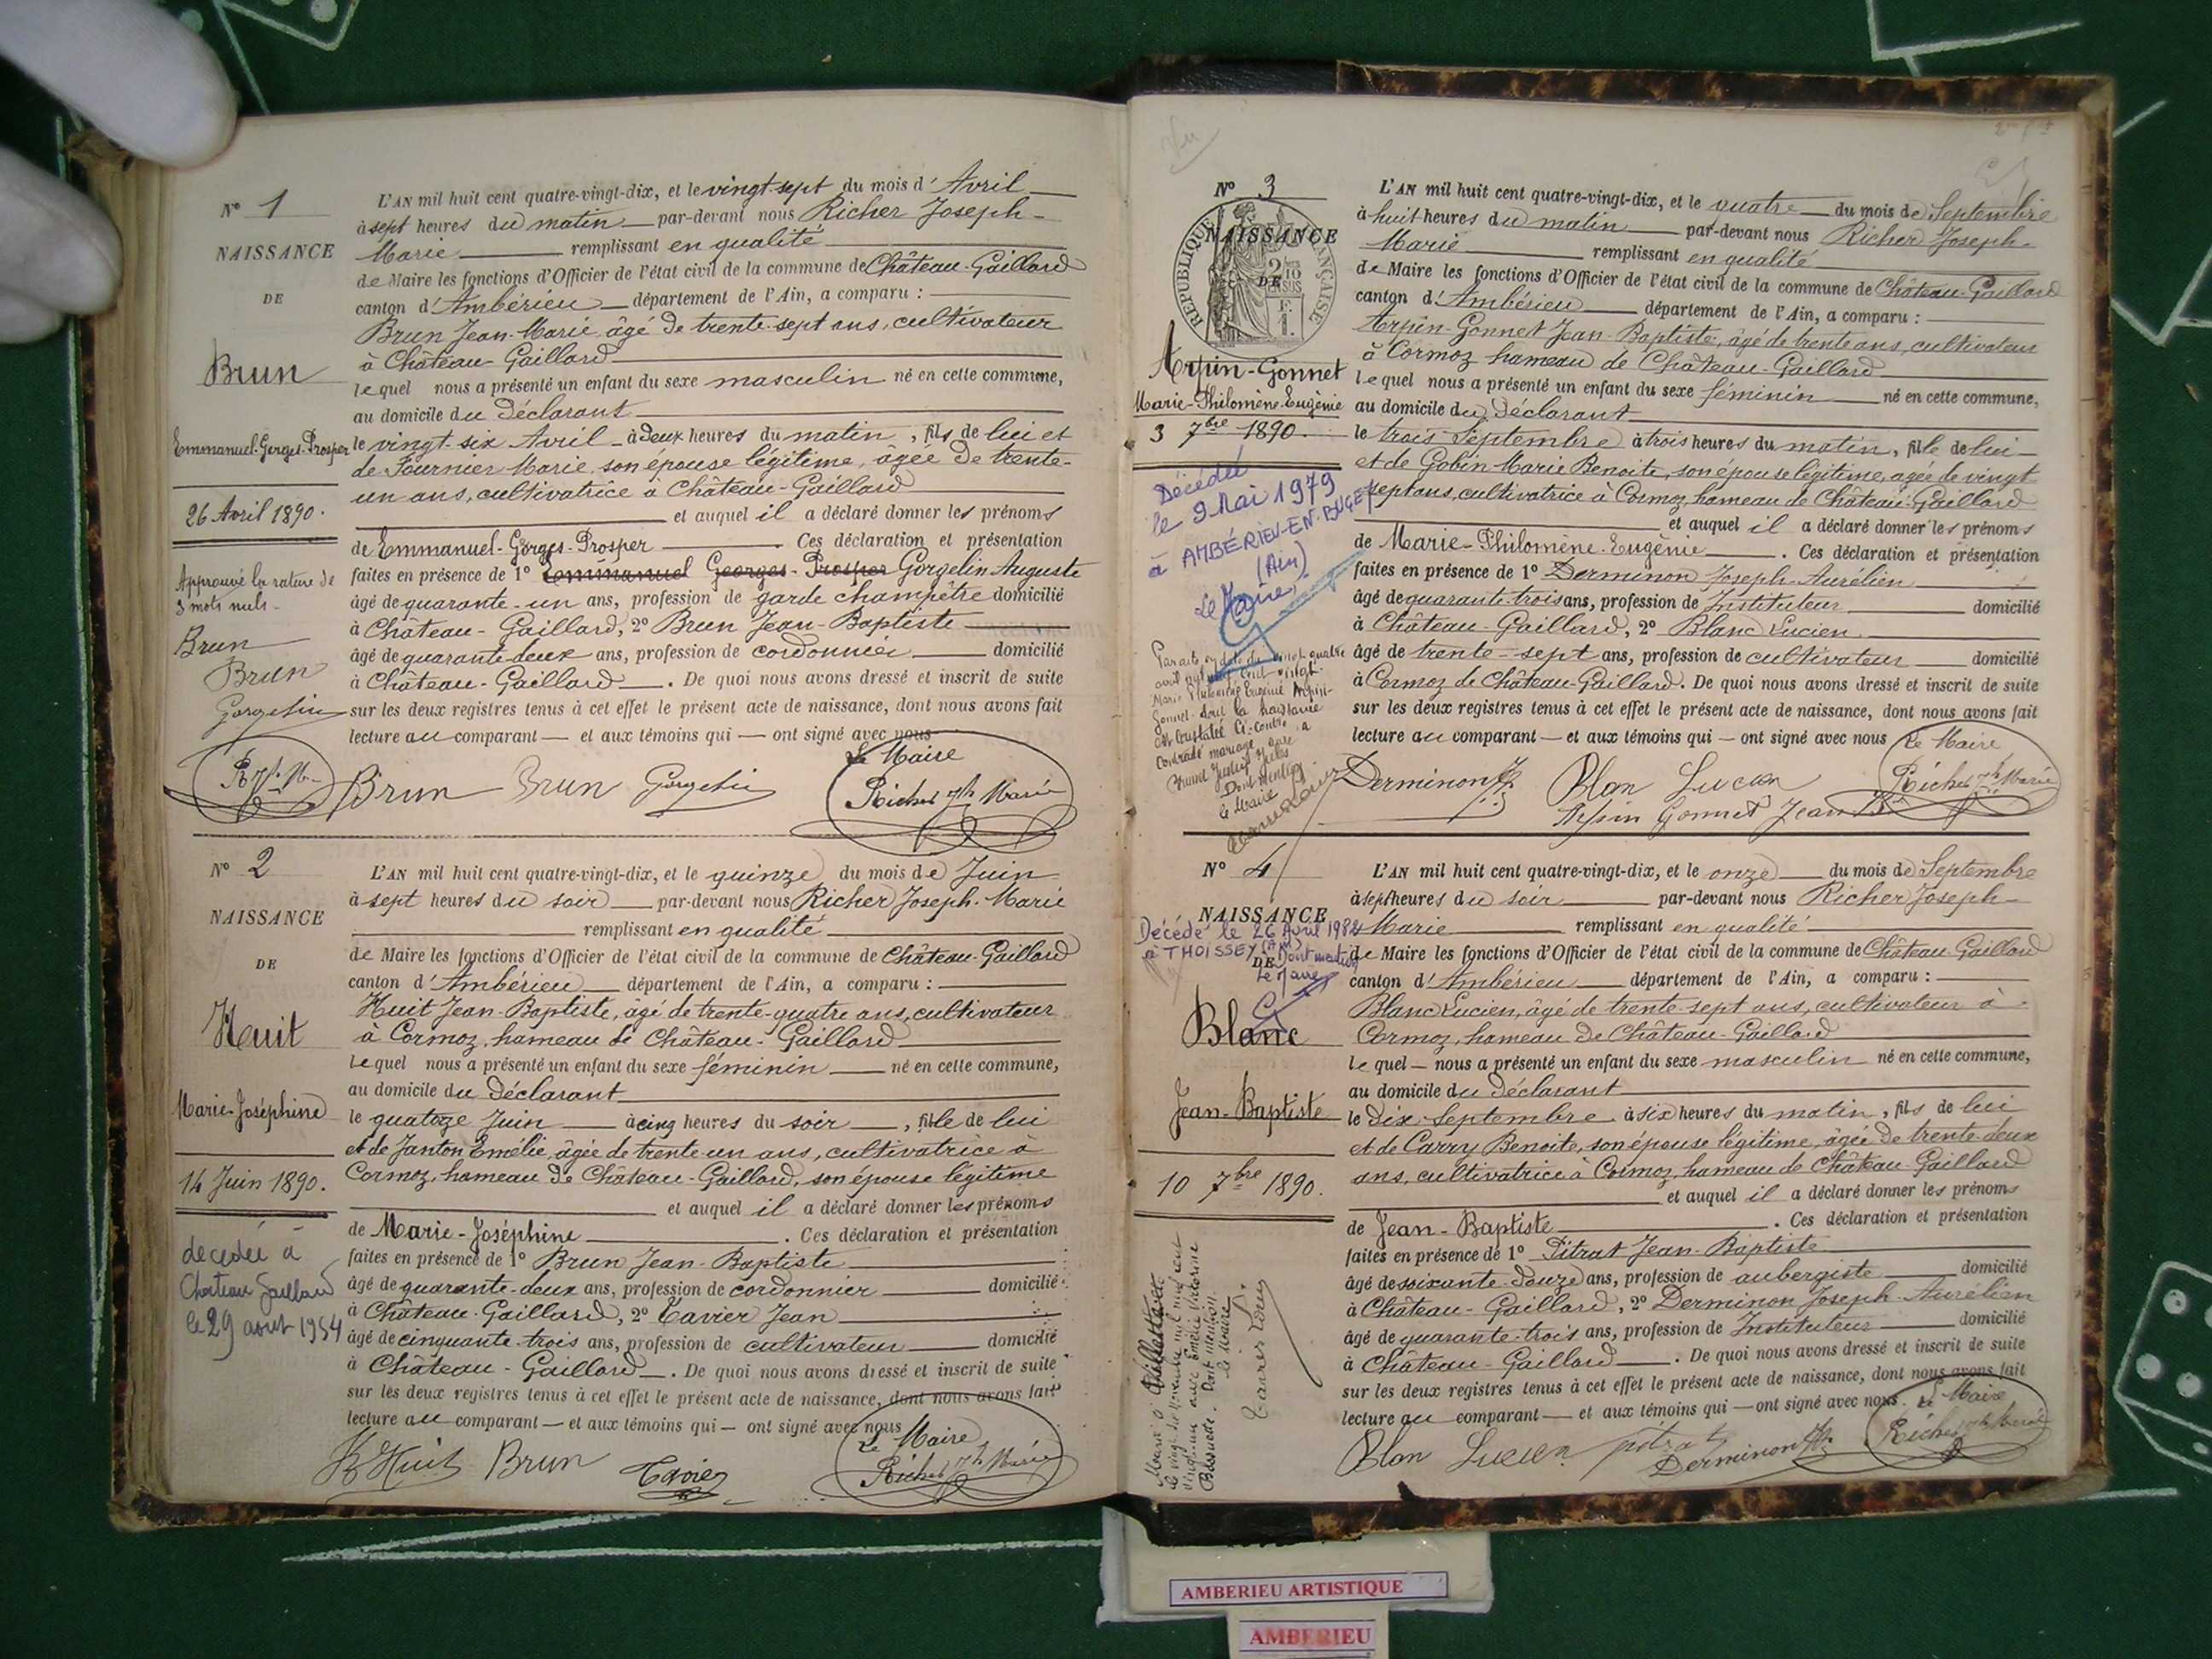 N° 1
NAISSANCE
DE
Brun
Emmanuel-Gorges-Prosper
26 Avril 1890.
Approuvé la rature de
3 mots nuls -
Brun
Brun
Gorgelin
L'AN mil huit cent quatre-vingt-dix, et le vingt-sept du mois d'Avril
à sept heures du matin par-devant nous Richer Joseph-
Marie remplissant en qualité
de Maire les fonctions d'Officier de l'état civil de la commune de Château-Gaillard
canton d'Ambérieu département de l'Ain, a comparu :
Brun Jean-Marie, âgé de trente-sept ans, cultivateur
à Château-Gaillard
lequel nous a présenté un enfant du sexe masculin né en cette commune,
au domicile du déclarant
le vingt-six Avril à deux heures du matin, fils de lui et
de Fournier Marie, son épouse légitime, âgée de trente-
un ans, cultivatrice à Château-Gaillard
et auquel il a déclaré donner les prénoms
de Emmanuel-Gorges-Prosper. Ces déclaration et présentation
faites en présence de 1° Emmanuel Georges-Prosper Gorgelin Auguste
âgé de quarante-un ans, profession de garde champêtre domicilié
à Château-Gaillard, 2° Brun Jean-Baptiste
âgé de quarante-deux ans, profession de cordonnier domicilié
à Château-Gaillard. De quoi nous avons dressé et inscrit de suite
sur les deux registres tenus à cet effet le présent acte de naissance, dont nous avons fait
lecture au comparant et aux témoins qui ont signé avec nous
Le Maire
Brun Brun Gorgelin Richer Jh Marie
N° 2
NAISSANCE
DE
Huit
Marie-Joséphine
14 Juin 1890.
décédée à
Chateau Gaillard
le 29 aout 1954
L'AN mil huit cent quatre-vingt-dix, et le quinze du mois de Juin
à sept heures du soir par-devant nous Richer Joseph-Marie
remplissant en qualité
de Maire les fonctions d'Officier de l'état civil de la commune de Château-Gaillard
canton d'Ambérieu département de l'Ain, a comparu :
Huit Jean-Baptiste, âgé de trente-quatre ans, cultivateur
à Cormoz, hameau de Château-Gaillard
lequel nous a présenté un enfant du sexe féminin né en cette commune,
au domicile du déclarant
le quatoze Juin à cinq heures du soir, fille de lui
et de Janton Emélie, âgée de trente-un ans, cultivatrice à
Cormoz, hameau de Château-Gaillard, son épouse légitime
et auquel il a déclaré donner les prénoms
de Marie-Joséphine. Ces déclaration et présentation
faites en présence de 1° Brun Jean-Baptiste
âgé de quarante-deux ans, profession de cordonnier domicilié
à Château-Gaillard, 2° Tavier Jean
âgé de cinquante-trois ans, profession de cultivateur domicilié
à Château-Gaillard. De quoi nous avons dressé et inscrit de suite
sur les deux registres tenus à cet effet le présent acte de naissance, dont nous avons fait
lecture au comparant et aux témoins qui ont signé avec nous
Le Maire
Huit Brun Tavier Richer Jh Marie
N° 3
NAISSANCE
DE
REPUBLIQUE FRANÇAISE
Arpin-Gonnet
Marie-Philomène-Eugènie
3 7bre 1890.
Décédée
le 9 Mai 1979
à AMBÉRIEU-EN-BUGEY
(Ain)
Le Maire,
Par acte en date du vingt-quatre
avril
Marie Philomène Eugénie Arpin-
Gonnet dont la naissance
est constatée ci-contre a
contracté mariage avec
Dont Mention
Le Maire
L'AN mil huit cent quatre-vingt-dix, et le quatre du mois de Septembre
à huit heures du matin par-devant nous Richer Joseph-
Marie remplissant en qualité
de Maire les fonctions d'Officier de l'état civil de la commune de Château-Gaillard
canton d'Ambérieu département de l'Ain, a comparu :
Arpin-Gonnet Jean-Baptiste, âgé de trente ans, cultivateur
à Cormoz hameau de Château-Gaillard
lequel nous a présenté un enfant du sexe féminin né en cette commune,
au domicile du déclarant
le trois Septembre à trois heures du matin, fille de lui
et de Gobin Marie Benoite, son épouse légitime, agée de vingt
sept ans, cultivatrice à Cormoz, hameau de Château-Gaillard
et auquel il a déclaré donner les prénoms
de Marie-Philomène-Eugènie. Ces déclaration et présentation
faites en présence de 1° Derminon Joseph-Aurélien
âgé de quarante-trois ans, profession de Instituteur domicilié
à Château-Gaillard, 2° Blanc Lucien
âgé de trente-sept ans, profession de cultivateur domicilié
à Cormoz de Château-Gaillard. De quoi nous avons dressé et inscrit de suite
sur les deux registres tenus à cet effet le présent acte de naissance, dont nous avons fait
lecture au comparant et aux témoins qui ont signé avec nous Le Maire
Derminon Blan Lucien Richer Jh Marie
Arpin Gonnet Jean Bte
N° 4
NAISSANCE
DE
Décédé le 26 Avril 1982
à THOISSEY (Ain)
Dont mention
Le Maire
Blanc
Jean-Baptiste
10 7bre 1890.
Marié à
le vingt
vingt-un avec Emélie Victorine
Dont mention.
le Maire
L'AN mil huit cent quatre-vingt-dix, et le onze du mois de Septembre
à sept heures du soir par-devant nous Richer Joseph-
Marie remplissant en qualité
de Maire les fonctions d'Officier de l'état civil de la commune de Château-Gaillard
canton d'Ambérieu département de l'Ain, a comparu :
Blanc Lucien, âgé de trente-sept ans, cultivateur à
Cormoz, hameau de Château-Gaillard
lequel nous a présenté un enfant du sexe masculin né en cette commune,
au domicile du déclarant
le dix Septembre à six heures du matin, fils de lui
et de Carry Benoite, son épouse légitime, âgée de trente-deux
ans, cultivatrice à Cormoz, hameau de Château-Gaillard
et auquel il a déclaré donner les prénoms
de Jean-Baptiste. Ces déclaration et présentation
faites en présence de 1° Pitrat Jean-Baptiste
âgé de soixante-douze ans, profession de aubergiste domicilié
à Château-Gaillard, 2° Derminon Joseph-Aurélien
âgé de quarante-trois ans, profession de Instituteur domicilié
à Château-Gaillard. De quoi nous avons dressé et inscrit de suite
sur les deux registres tenus à cet effet le présent acte de naissance, dont nous avons fait
lecture au comparant et aux témoins qui ont signé avec nous. Le Maire
Blan Lucien pitrat Derminon Richer Jh Marie
AMBERIEU ARTISTIQUE
AMBERIEU